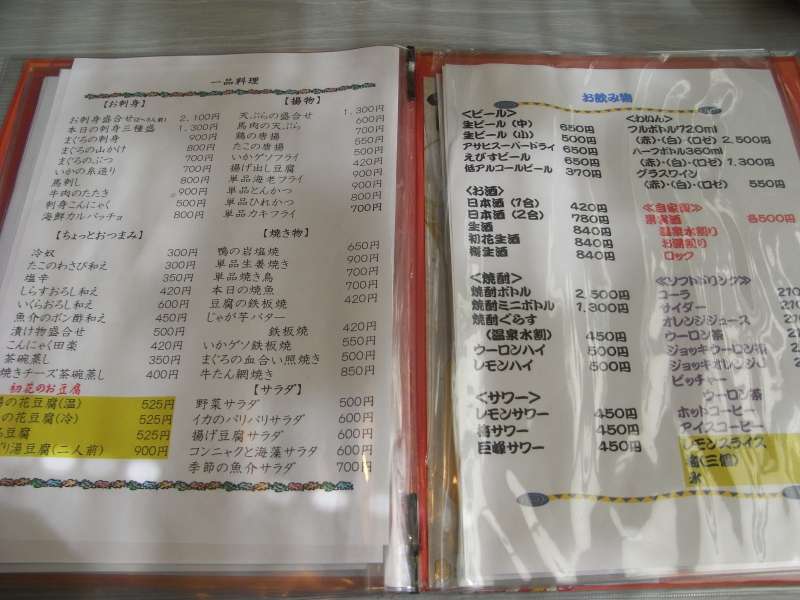 一品料理
【お刺身】
お刺身盛合せ(2~3人前) 2,100円
本日の刺身三種盛 1,300円
まぐろの刺身 900円
まぐろの山かけ 800円
まぐろのぶつ 700円
いかの糸造り 700円
馬刺し 900円
牛肉のたたき 900円
刺身こんにゃく 500円
海鮮カルパッチョ 800円
【ちょっとおつまみ】
冷奴 300円
たこのわさび和え 300円
塩辛 350円
しらすおろし和え 420円
いくらおろし和え 600円
魚介のポン酢和え 450円
漬け物盛合せ 500円
こんにゃく田楽 420円
茶碗蒸し 350円
焼きチーズ茶碗蒸し 400円
初花のお豆腐
の花豆腐(温) 525円
の花豆腐(冷) 525円
豆腐 525円
り湯豆腐(二人前) 900円
【揚物】
天ぷらの盛合せ 1,300円
馬肉の天ぷら 600円
鶏の唐揚 700円
たこの唐揚 500円
いかゲソフライ
揚げ出し豆腐
単品海老フライ
単品とんかつ 900円
単品ひれかつ 900円
単品カキフライ 700円
【焼き物】
鴨の岩塩焼 650円
単品生姜焼き 900円
単品焼き鳥
本日の焼魚
豆腐の鉄板焼 420円
じゃが芋バター
鉄板焼 420円
いかゲソ鉄板焼 550円
まぐろの血合い照焼き 500円
牛たん網焼き 850円
【サラダ】
野菜サラダ 500円
イカのパリパリサラダ 600円
揚げ豆腐サラダ 600円
コンニャクと海藻サラダ 600円
季節の魚介サラダ 700円
お飲み物
<ビール>
生ビール (中) 650円
生ビール (小) 500円
アサヒスーパードライ 650円
えびすビール 650円
低アルコールビール 370円
<お酒>
日本酒 (1合) 420円
日本酒 (2合) 780円
生酒 840円
初花生酒 840円
桜生酒 840円
<焼酎>
焼酎ボトル 2,500円
焼酎ミニボトル 1,300円
焼酎ぐらす
(温泉水割) 450円
ウーロンハイ 500円
レモンハイ 500円
<サワー>
レモンサワー 450円
梅サワー 450円
巨峰サワー 450円
<わいん>
フルボトル720ml
(赤)・(白)・(ロゼ) 2,500円
ハーフボトル360ml
(赤)・(白)・(ロゼ) 1,300円
グラスワイン
(赤)・(白)・(ロゼ) 550円
温泉水割り
お湯割り
ロック
<ソフトドリンク>
コーラ
サイダー
オレンジジュース
ウーロン茶
ジョッキウーロン茶
ジョッキオレンジJ
ピッチャー
ウーロン茶
ホットコーヒー
アイスコーヒー
レモンスライス
梅(三個)
氷